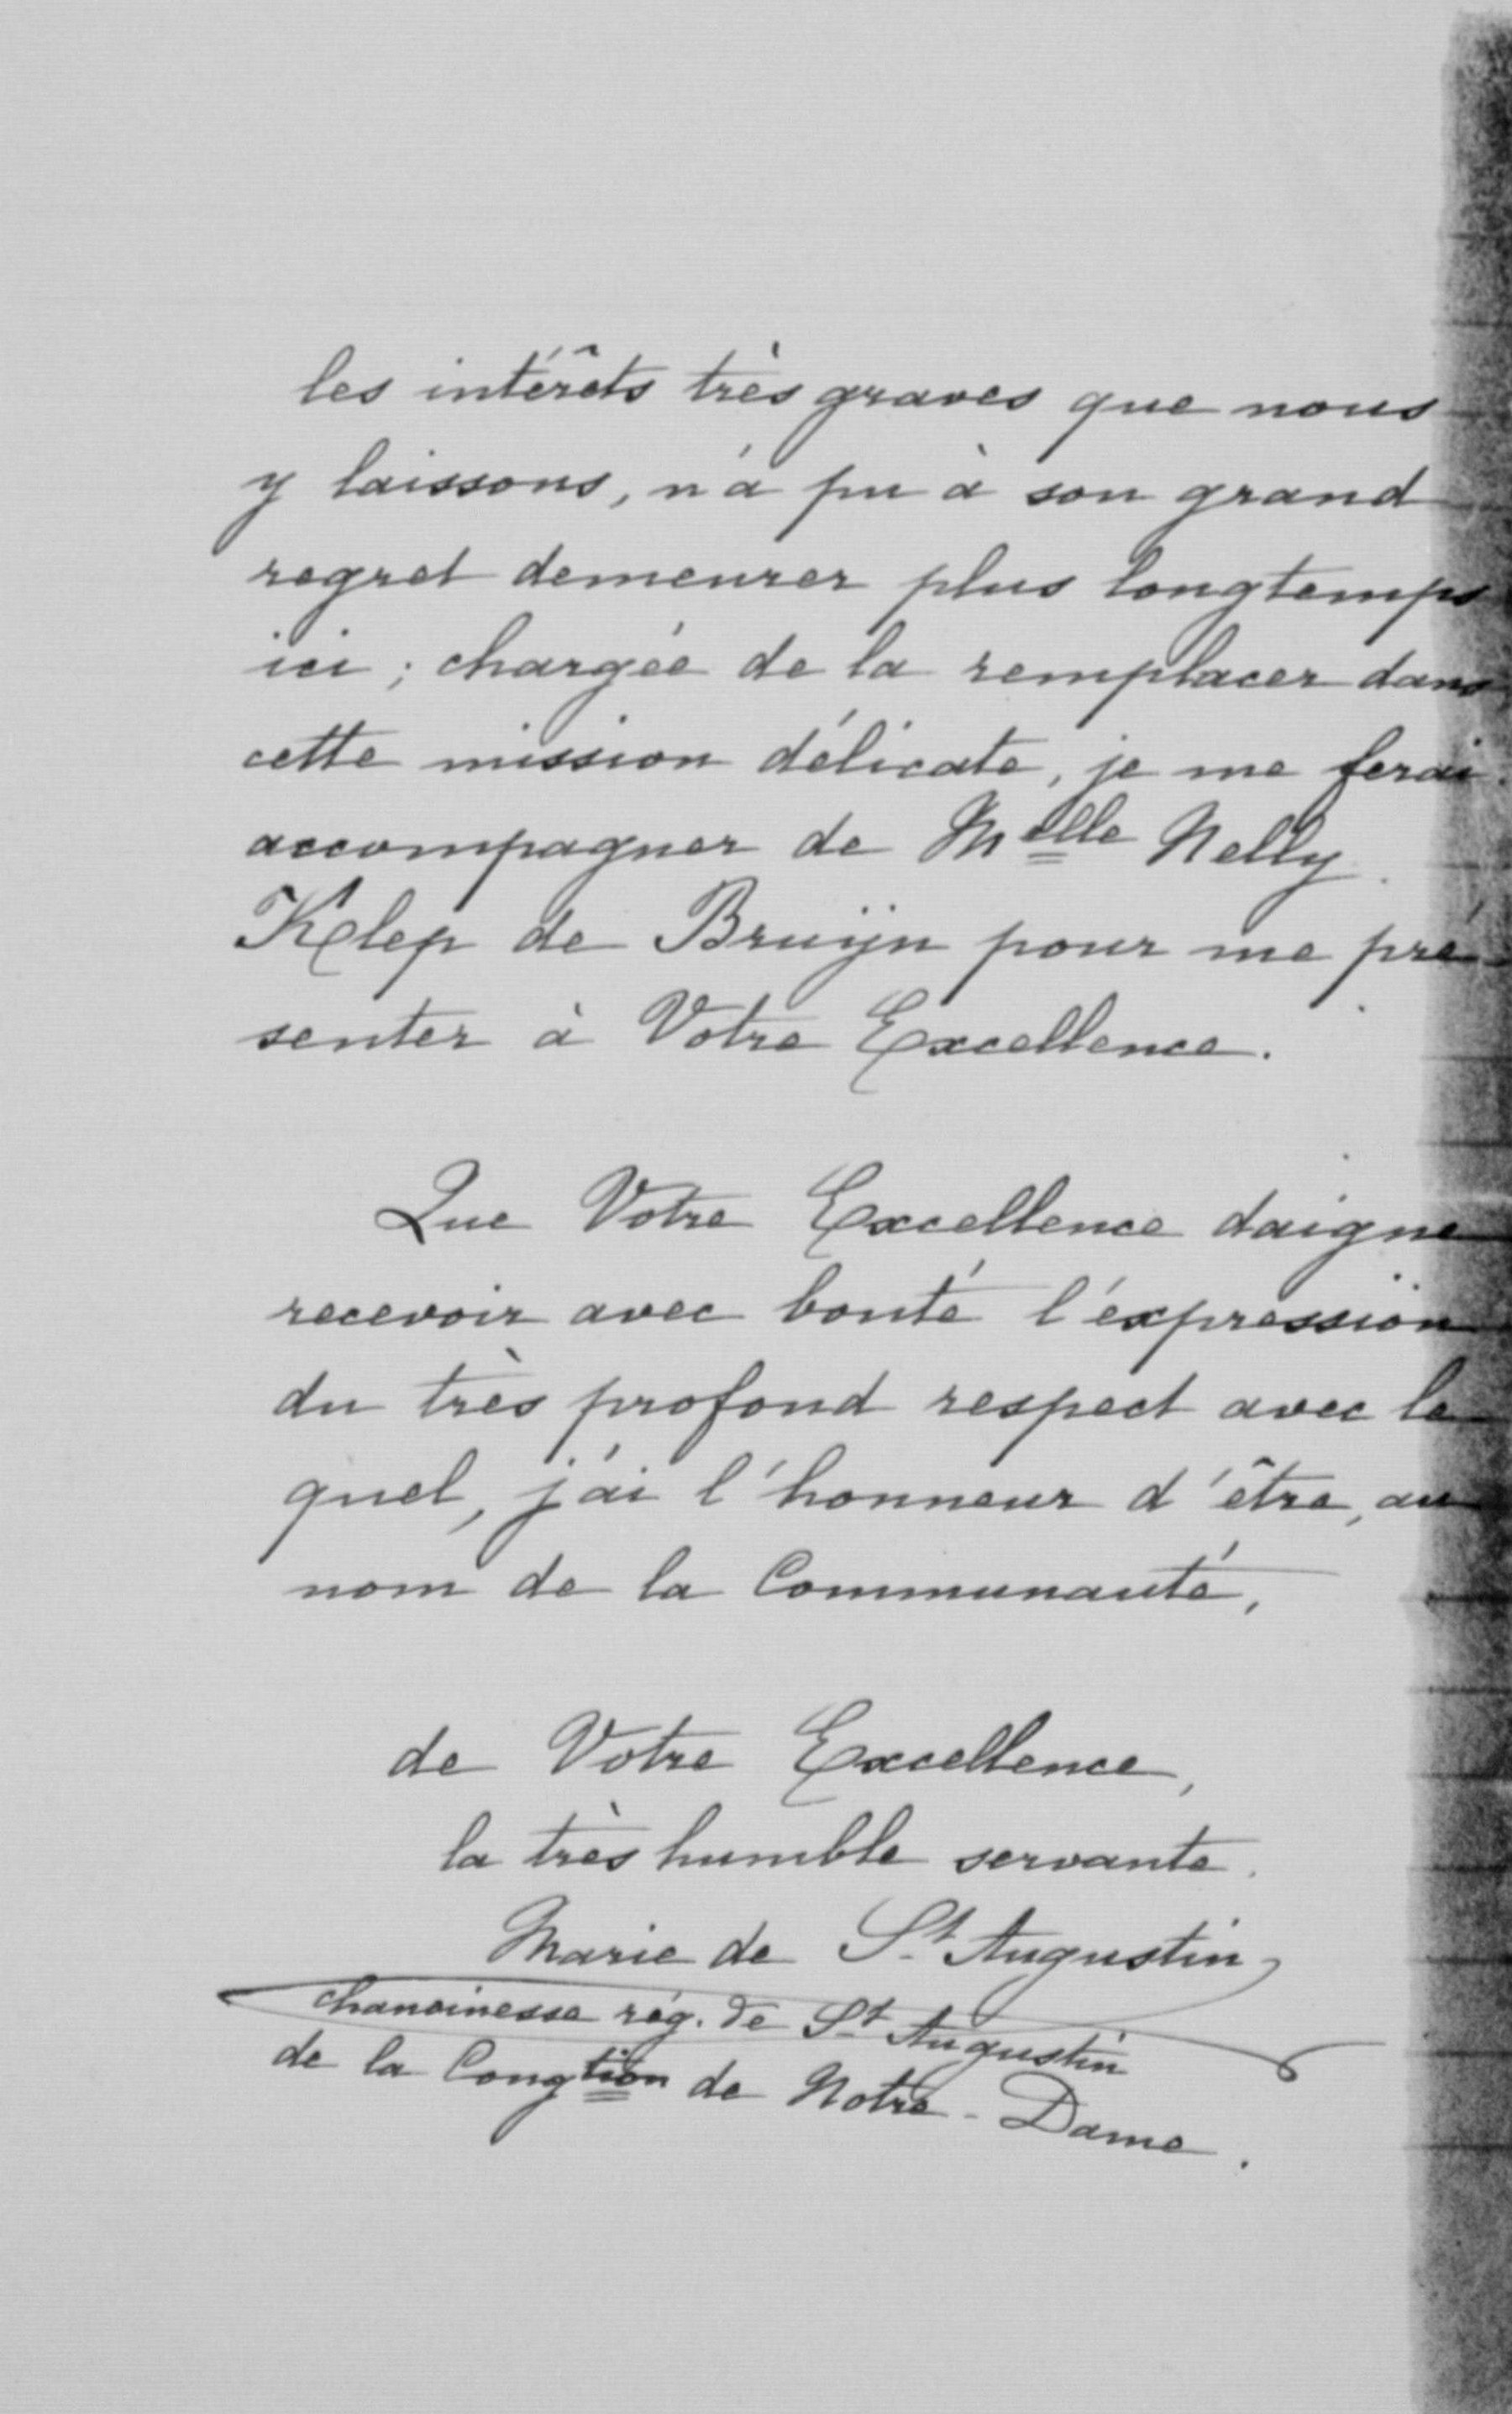 les intérêts très graves que nous
y laissons, n'a pu à son grand
regret demeurer plus longtemps
ici ; chargée de la remplacer dans
cette mission délicate, je me ferai
accompagner de Melle Nelly
Kolep de Bruijn pour me pré-
senter à Votre Excellence.
Que Votre Excellence daigne
recevoir avec bonté l'expression
du très profond respect avec le
quel, j'ai l'honneur d'être, au
nom de la Communauté,
de Votre Excellence,
la très humble servante.
Marie de St Augustin
chanoinesse rég. de St Augustin
de la Congtion de Notre-Dame.